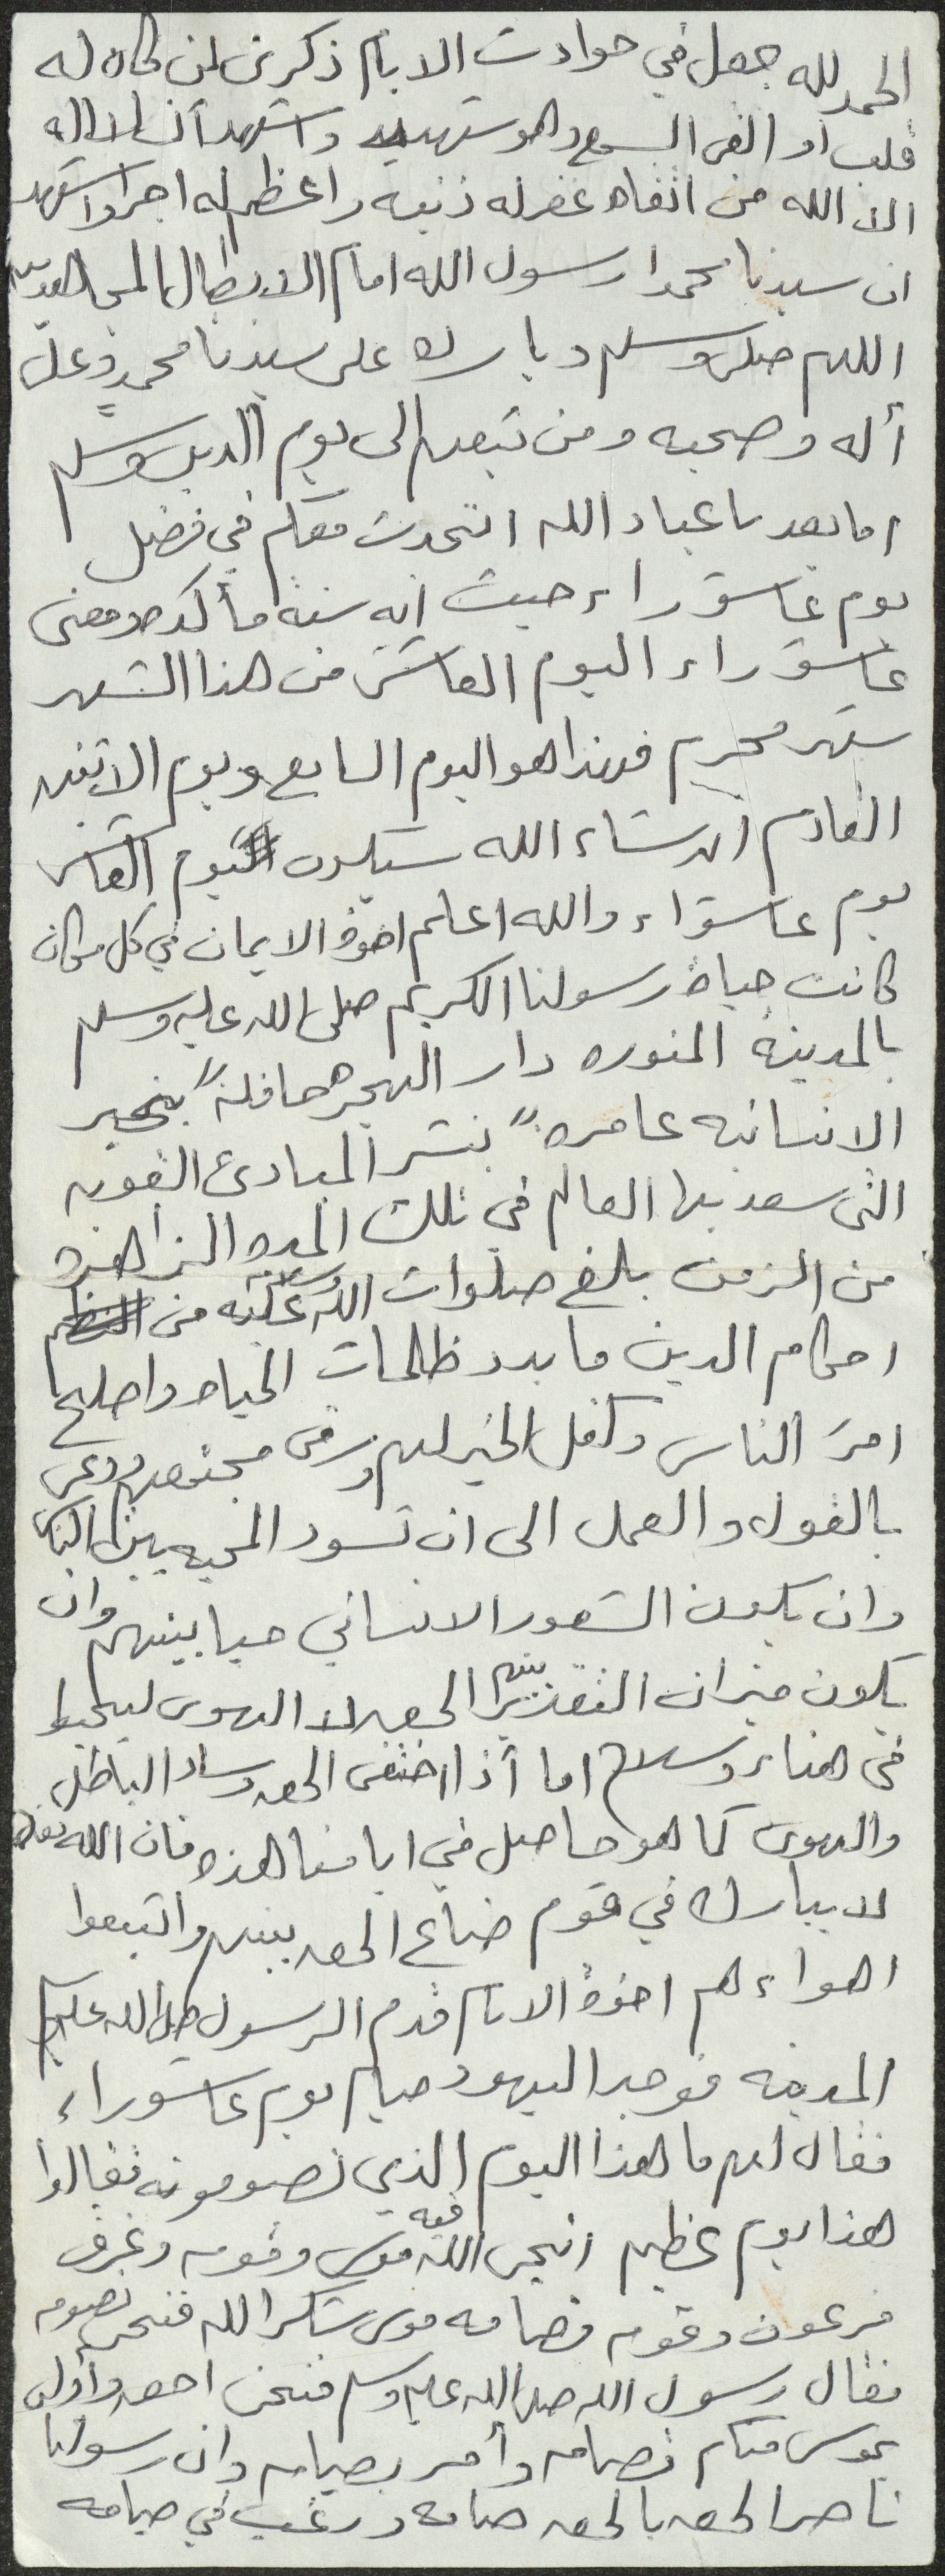 الحمد لله جعل في حوادث الايام ذكرى لمن كان له
قلب او القى السمع وهو شهيد واشهد أن لا اله
الا الله من اتقاه غفر له ذنبه واعظم له اجرا واشهد
ان سيدنا محمدا رسول الله امام الابطال المجاهدين
اللهم صلى وسلم وبارك على سيدنا محمدٍ وعلى
أله وصحبه ومن تبعهم الى يوم الدين وسلم
اما بعد يا عباد الله اتحدث معكم في فضل
يوم عاشوراء حيث انه سنه مأكده ومعنى
عاشوراء اليوم العاشر من هذا الشهر
شهر محرم فهذا هو اليوم السابع ويوم الاثنين
القادم ان شاء الله سيكون اليوم العاشر
يوم عاشواء والله اعلم اخوة الايمان في كل مكان
كانت حياة رسولنا الكريم صلى الله عليه وسلم
بالمدينة المنوره دار الهجره حافلةً بخير
الانسانيه عامرهً بنشر المبادئ القويه
التى سعد بها العالم في تلك المده الزاهره
من الزمن بلغ صلوات الله وسلامه عليه من
احكام الدين ما بدد ظلمات الحياه واصلح
امرَ الناس وكفل الخير لهم ورقى مجتمعهم ودعى
بالقول والعمل الى ان تسود المحبه بين الناس
وان يكون الشعور الانساني حيا بينهم وان
يكون ميزان التقدير بينهم الحق لا الهوى ليحيوا
في هناء وسلام اما أذا اختفى الحق وساد الباطل
والهوى كما هو حاصل في ايامنا هذه فان الله تعالى
لا يبارك في قوم ضاع الحق بينهم واتبعوا
اهواءهم اخوة الاسلام قدم الرسول صلى الله عليه وسلم
المدينه فوجد اليهود صيام يوم عاشوراء
فقال لهم ما هذا اليوم الذي تصومونه فقالوا
هذا يوم عظيم انجى الله فيه موسى وقومه وغرق
فرعون وقومه فصامه موسى شكرا لله فنحن نصومه
فقال رسول الله صلى الله عليه وسلم فنحن احق وأولى
بموسى منكم فصامه وأمر بصيامه وان رسولنا
ناصر الحق بالحق صامه ورغب في صيامه